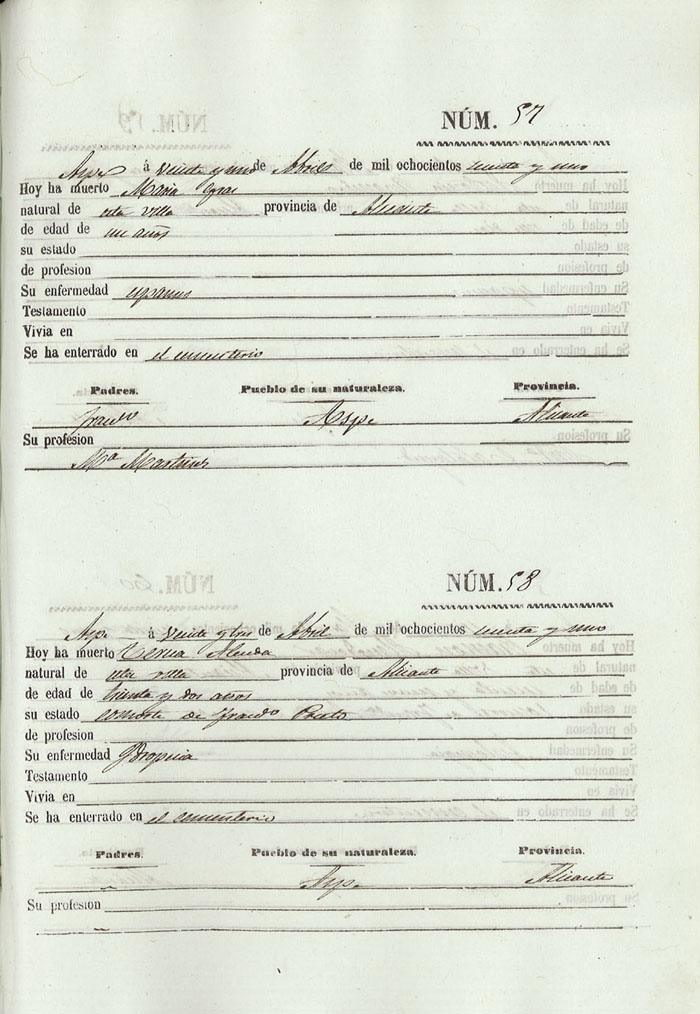 NÚM. 57
Aspe á veinte y uno de Abril de mil ochocientos y uno
Hoy ha muerto Maria
natural de esta villa provincia de Alicante
de edad de un años
su estado
de profesion
Su enfermedad
Testamento
Vivia en
Se ha enterrado en el cementerio
Padres. Pueblo de su naturaleza. Provincia.
Aspe Alicante
Su profesion
Mª Martinez
NÚM. 58
Aspe á veinte y tres de Abril de mil ochocientos y uno
Hoy ha muerto Teresa Alenda
natural de esta villa provincia de Alicante
de edad de treinta y dos años
su estado consorte de
de profesion
Su enfermedad
Testamento
Vivia en
Se ha enterrado en el cementerio
Padres. Pueblo de su naturaleza. Provincia.
Aspe Alicante
Su profesion